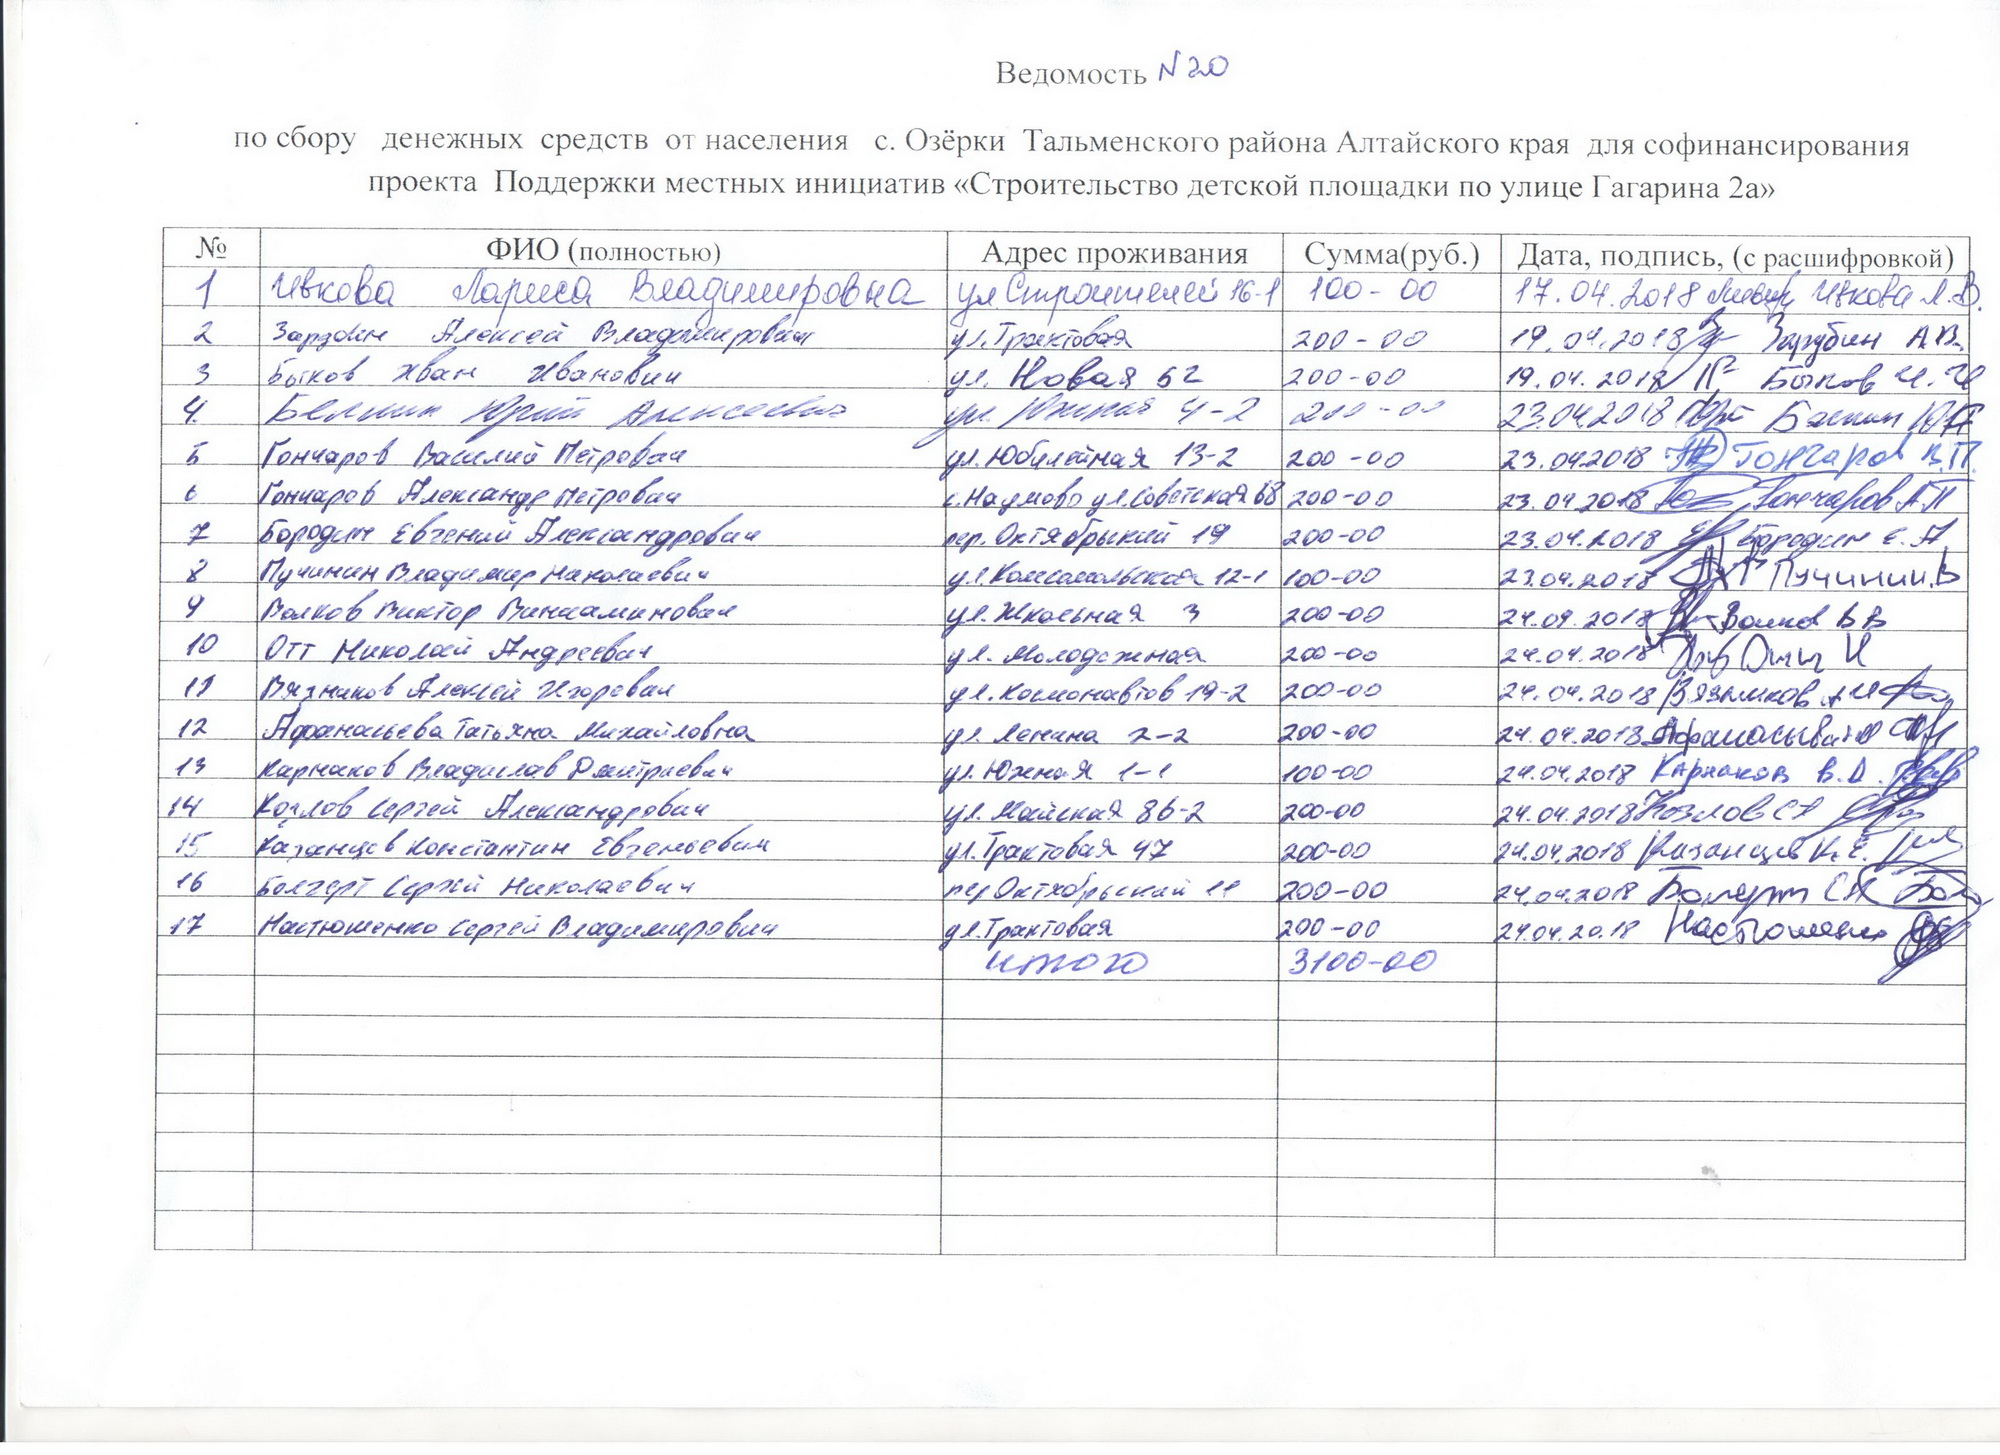 Ведомость N 20
по сбору денежных средств от населения с. Озёрки Тальменского района Алтайского края для софинансирования
проекта Поддержки местных инициатив «Строительство детской площадки по улице Гагарина 2а»
№ ФИО (полностью) Адрес проживания Сумма(руб.) Дата, подпись, (с расшифровкой)
1 Ивкова Лариса Владимировна ул Строителей 16-1 100-00 17.04.2018 Ивкова Л.В.
2 Алексей Владимирович ул. Трактовая 200-00 19.04.2018 Зарубин А.В.
3 Быков Иван Иванович ул. Новая 52 200-00 19.04.2018 Быков И.И
4. Юрий Алексеевич ул. Южная 4-2 200-00 23.04.2018
5 Гончаров Василий Петрович ул. Юбилейная 13-2 200-00 23.04.2018 Гончаров В.П.
6 Гончаров Александр Петрович с. Наумово ул. Советская 68 200-00 23.04.2018 Гончаров А.П
7 Бородин Евгений Александрович пер. Октябрьский 19 200-00 23.04.2018 Бородин Е.А
8 Пучинин Владимир Николаевич ул. Комсомольская 12-1 100-00 23.04.2018 Пучинин В
9 Волков Виктор Виниаминович ул. Школьная 3 200-00 24.04.2018 Волков В В
10 Отт Николай Андреевич ул. Молодежная 200-00 24.04.2018 Отт Н
11 Вязников Алексей Игоревич ул. Космонавтов 19-2 200-00 24.04.2018 Вязников А И
12 Афанасьева Татьяна Михайловна ул. Ленина 2-2 200-00 24.04.2018 Афанасьева
13 Карнаков Владислав Дмитриевич ул. Южная 1-1 100-00 24.04.2018 Карнаков В.Д.
14 Козлов Сергей Александрович ул. Майская 86-2 200-00 24.04.2018 Козлов СА
15 Казанцев Константин Евгеньевич ул. Трактовая 47 200-00 24.04.2018 Казанцев К.Е.
16 Болгерт Сергей Николаевич пер Октябрьский 11 200-00 24.04.2018 Болгерт СН
17 Настюшенко Сергей Владимирович ул. Трактовая 200-00 24.04.20.18 Настюшенко
итого 3100-00